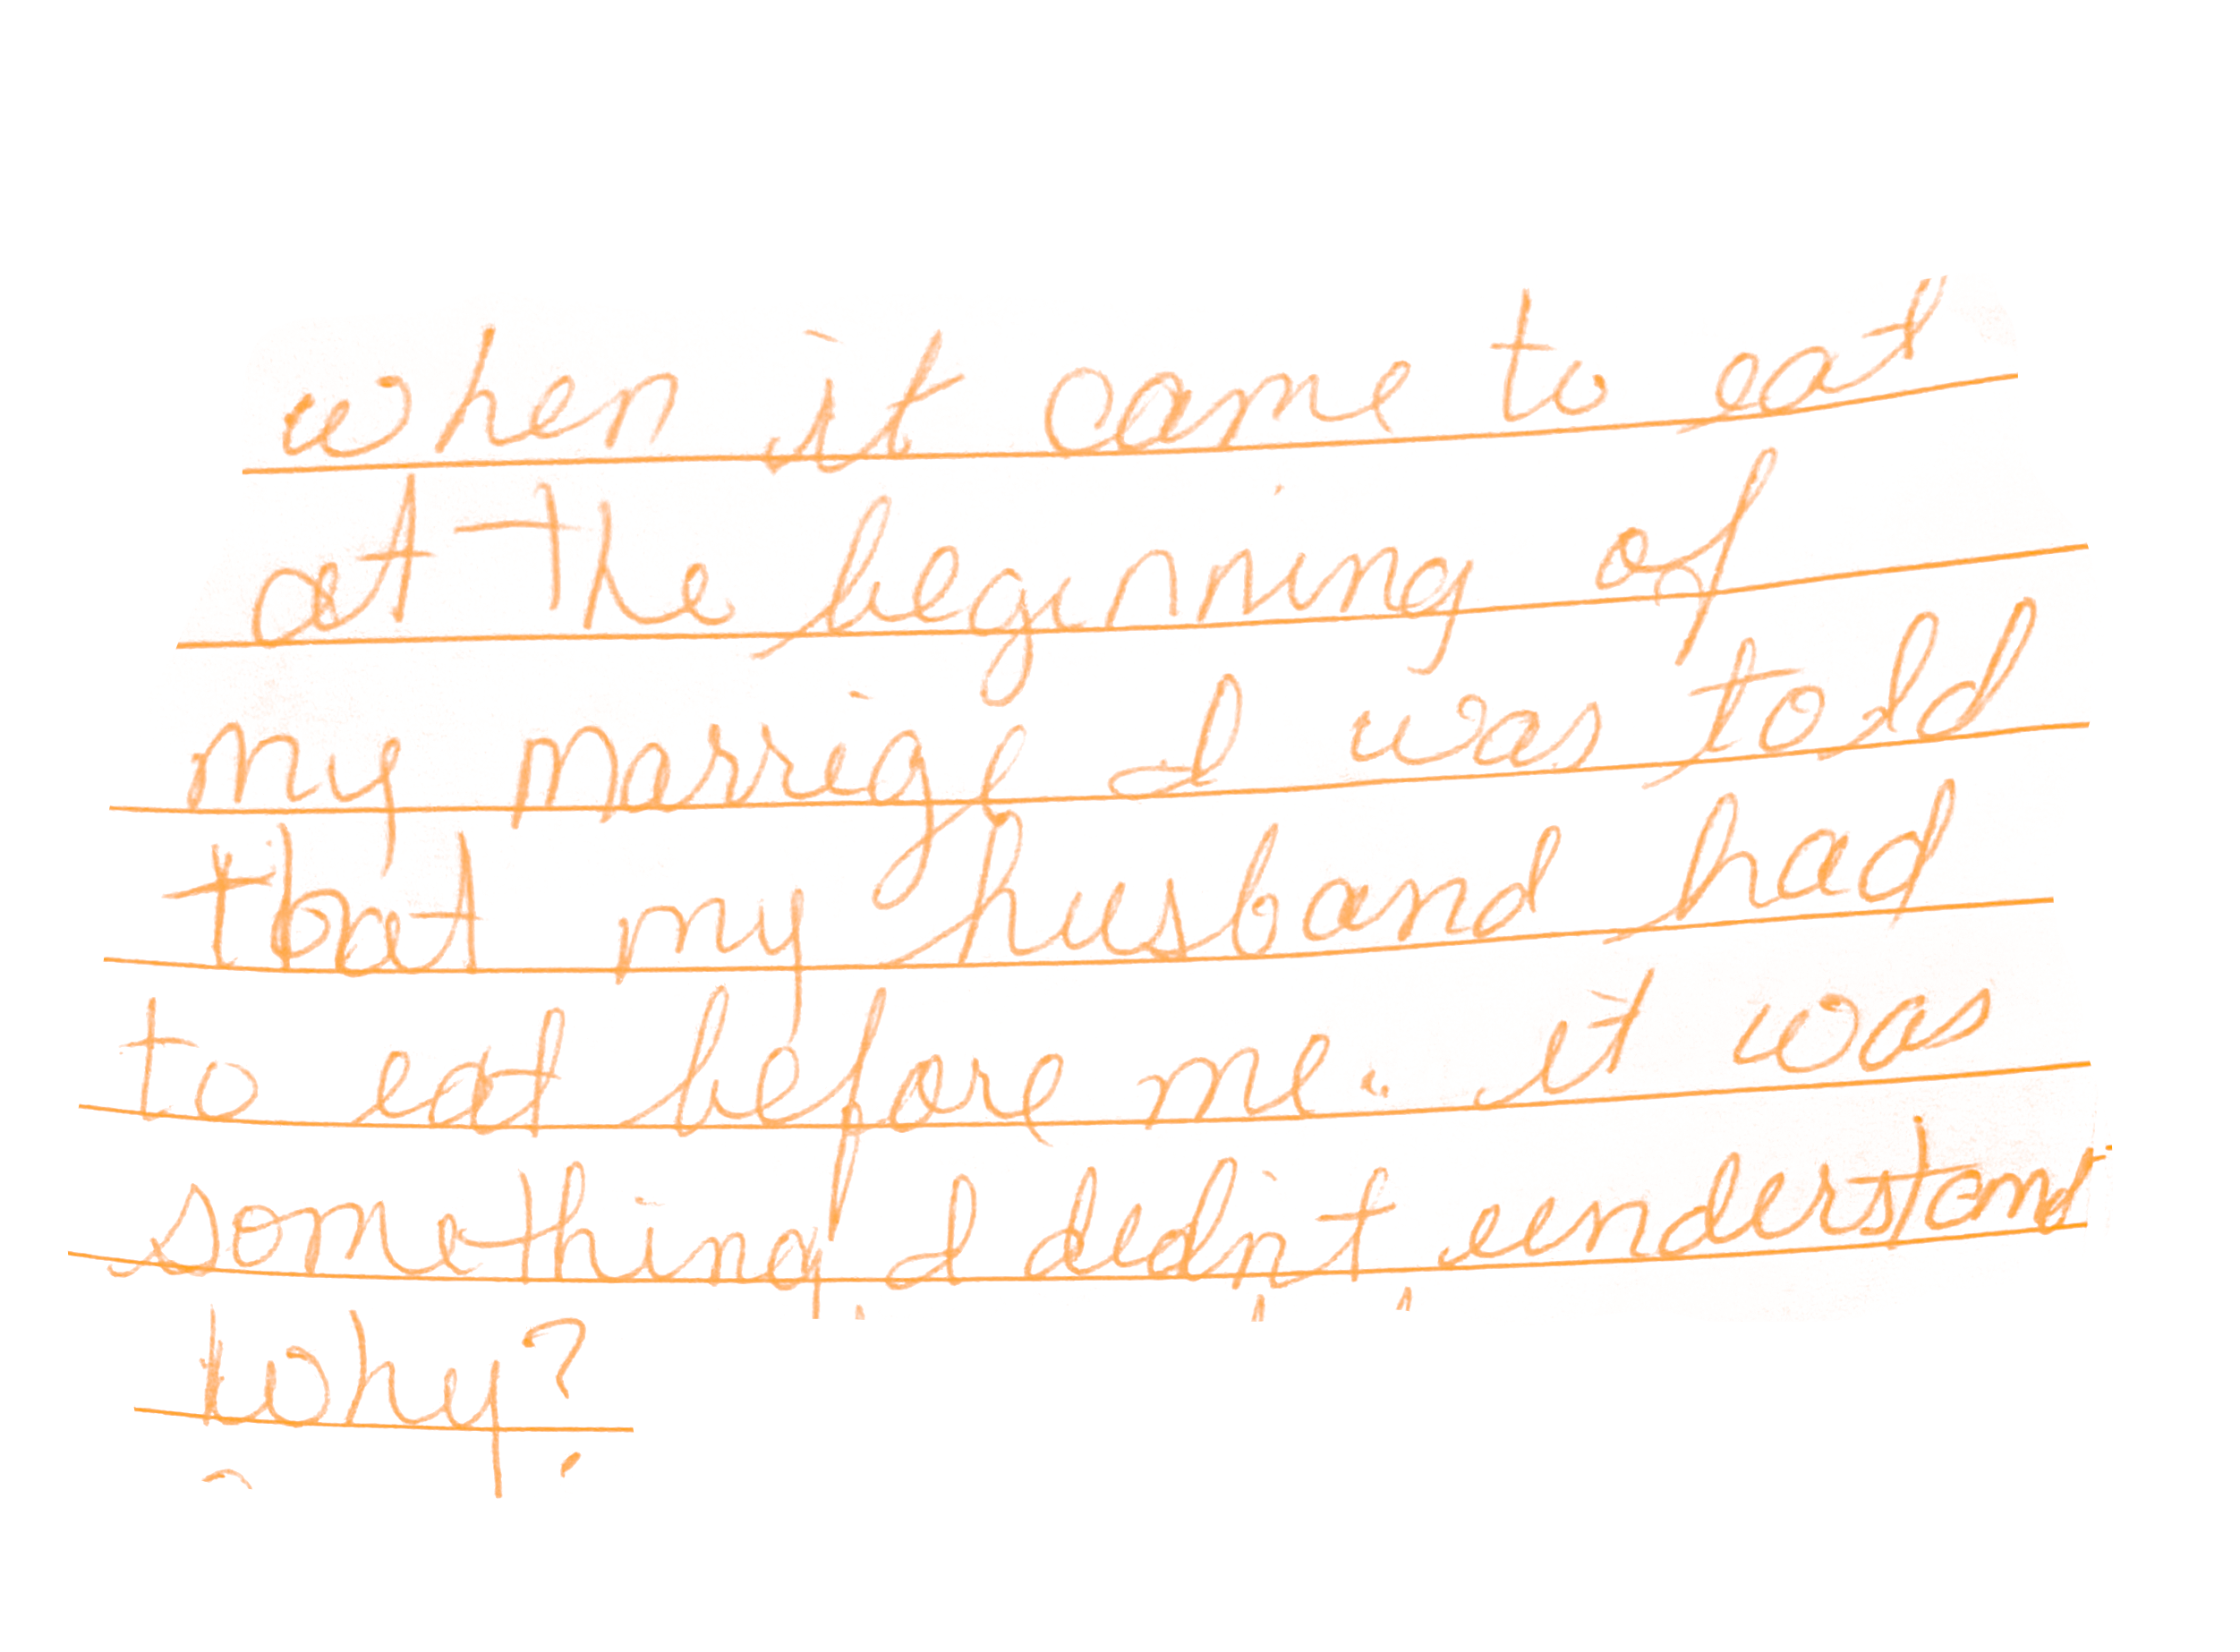 when it came to eat
at the beginning of
my merrige I was told
that my husband had
to eat before me. it was
something I didn't understand
why?